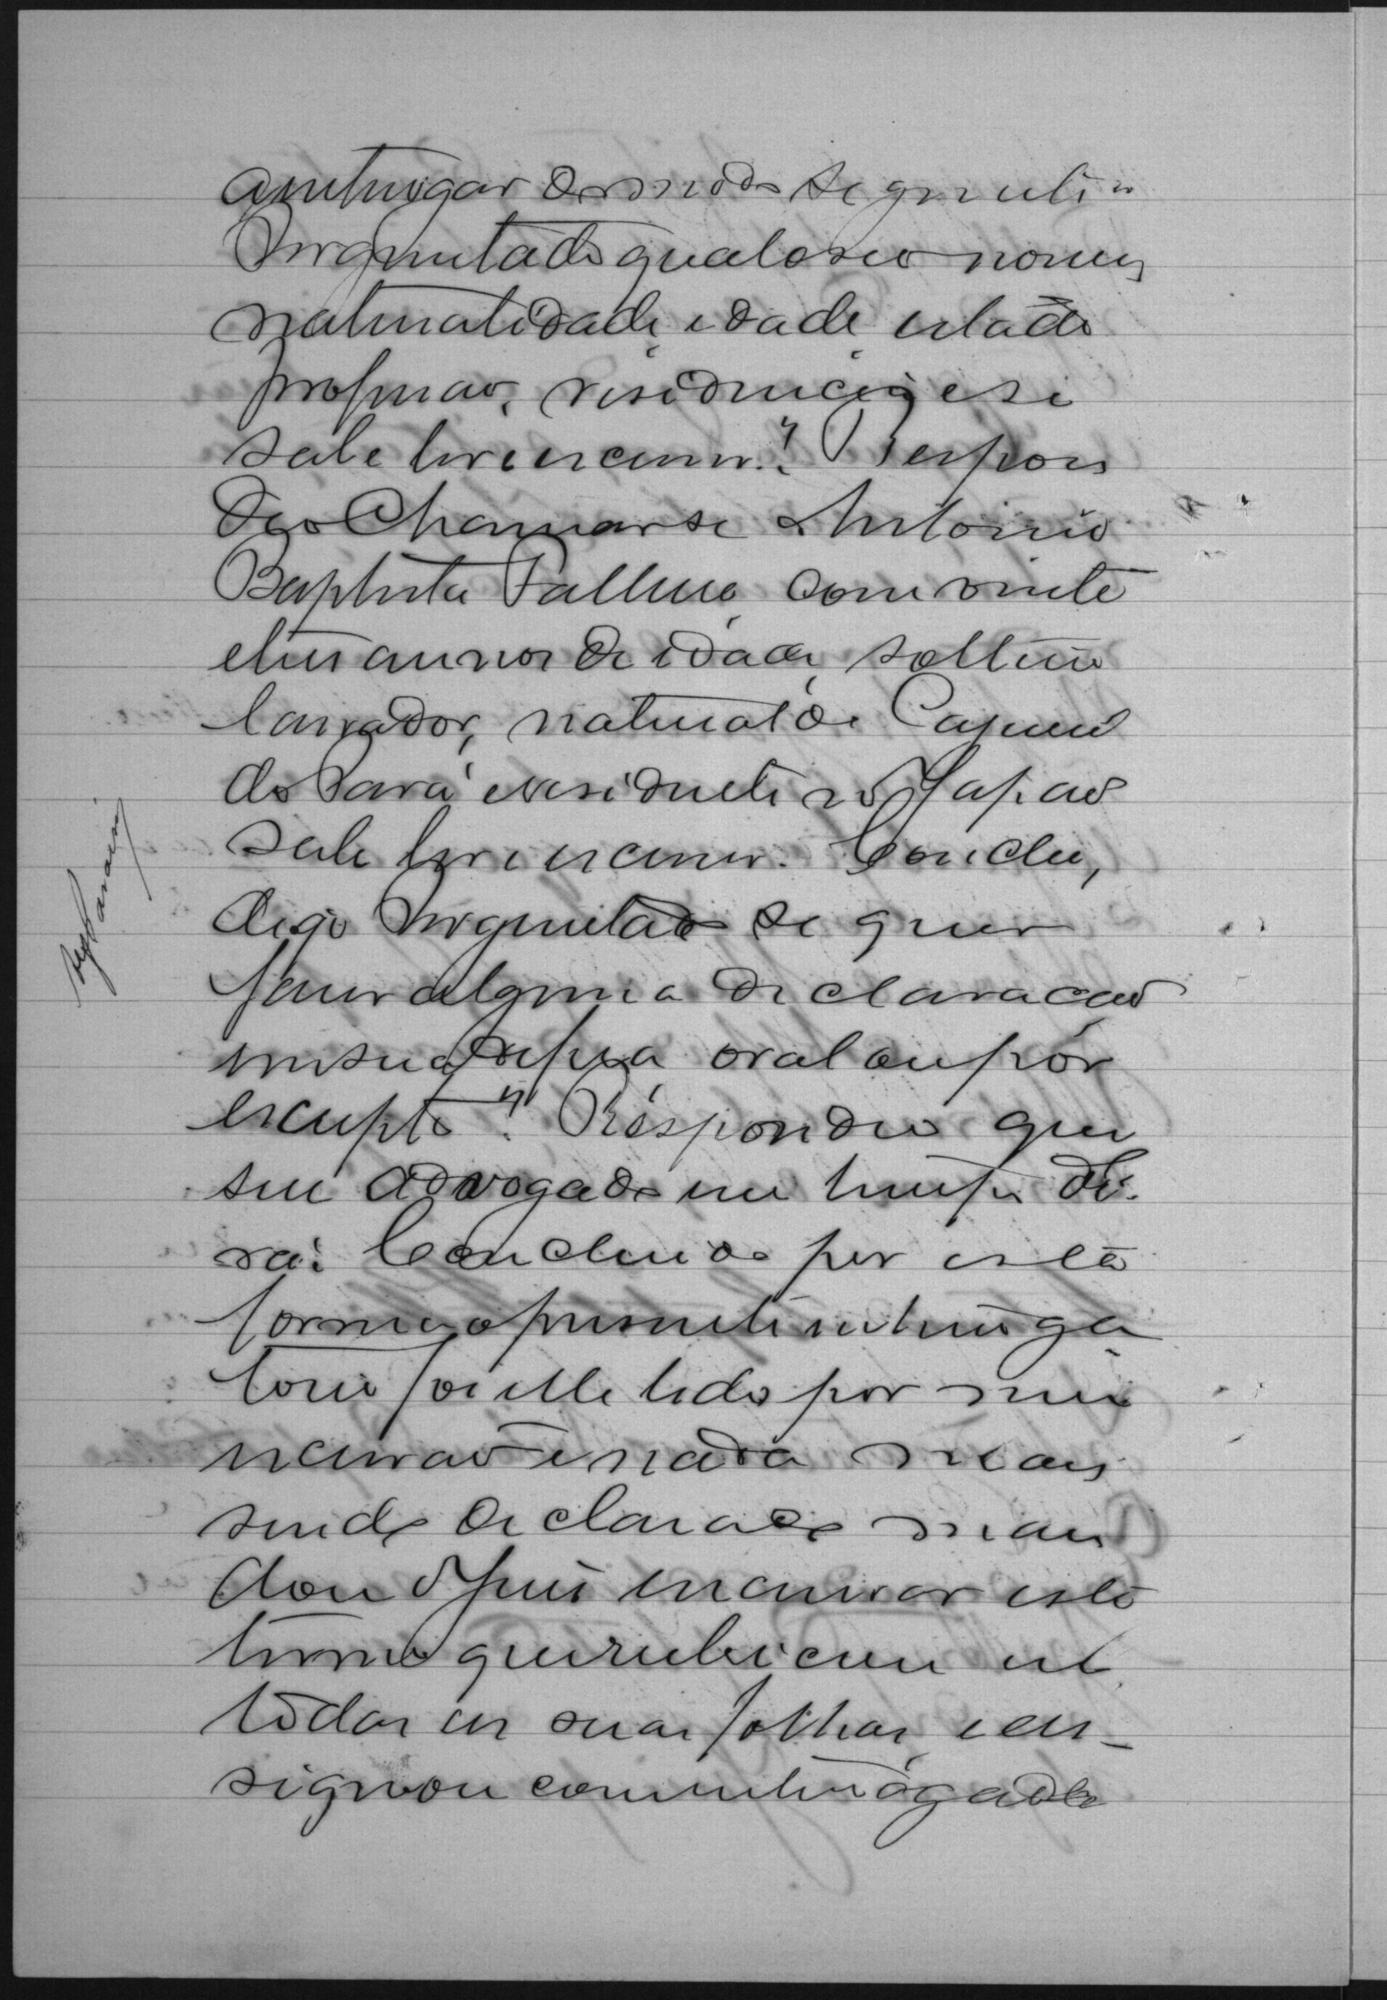 a interrogar do modo seguinte:
Perguntado qual o seu nome,
naturalidade, edade, estado
profissão, residencia, e si
sabe ler e escrever? Respon
deo chamar se Antonio
Baptista com vinte
e tres annos de idade, solteiro
lavrador, natural de
do Pará e residente no
sabe ler e escrever. Conclu,
digo Perguntado se quer
fazer alguma declaração
em sua defesa oral ou por
escripto? Respondeo que
seu advogado em tempo di-
rá. Concluido por esta
forma o presente interroga
torio foi lhe lido por mim
escrivão e nada mais
sendo declarado man
dou o Juiz encerrar este
termo que rubricou em
todas as suas folhas, e as-
signou com interrogado